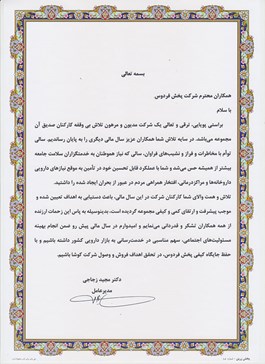 بسمه تعالی
همکاران محترم شرکت پخش فردوس
با سلام
براستی پویایی، ترقی و تعالی یک شرکت مدیون و مرهون تلاش بی وقفه کارکنان صدیق آن
مجموعه می‌باشد. در سایه تلاش شما همکاران عزیز سال مالی دیگری را به پایان رساندیم. سالی
توأم با مخاطرات و فراز و نشیب‌های فراوان. سالی که نیاز هموطنان به خدمتگزاران سلامت جامعه
بیشتر از همیشه حس می‌شد و شما با عملکرد قابل تحسین خود در تأمین به موقع نیازهای دارویی
داروخانه‌ها و مراکزدرمانی، افتخار همراهی مردم در عبور از بحران ایجاد شده را داشتید.
تلاش و همت والای شما کارکنان شرکت در این سال مالی، باعث دستیابی به اهداف تعیین شده و
موجب پیشرفت و ارتقای کمی و کیفی مجموعه گردیده است. بدینوسیله به پاس این زحمات ارزنده
از همه همکاران تشکر و قدردانی می‌نمایم و امیدوارم در سال مالی پیش رو ضمن انجام بهینه
مسئولیت‌های اجتماعی، سهم مناسبی در خدمت‌رسانی به بازار دارویی کشور داشته باشیم و با
حفظ جایگاه کیفی پخش فردوس، در تحقق اهداف فروش و وصول شرکت کوشا باشیم.
دکتر مجید زجاجی
مدیرعامل